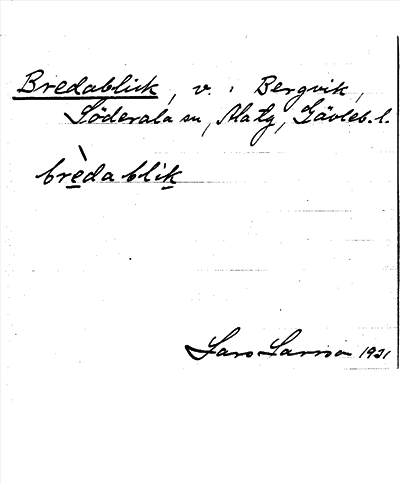 Bredablick, v. i Bergvik,
Söderala sn, Matg, Gävleb. l.
brèdablik
Lars Larsson 1921